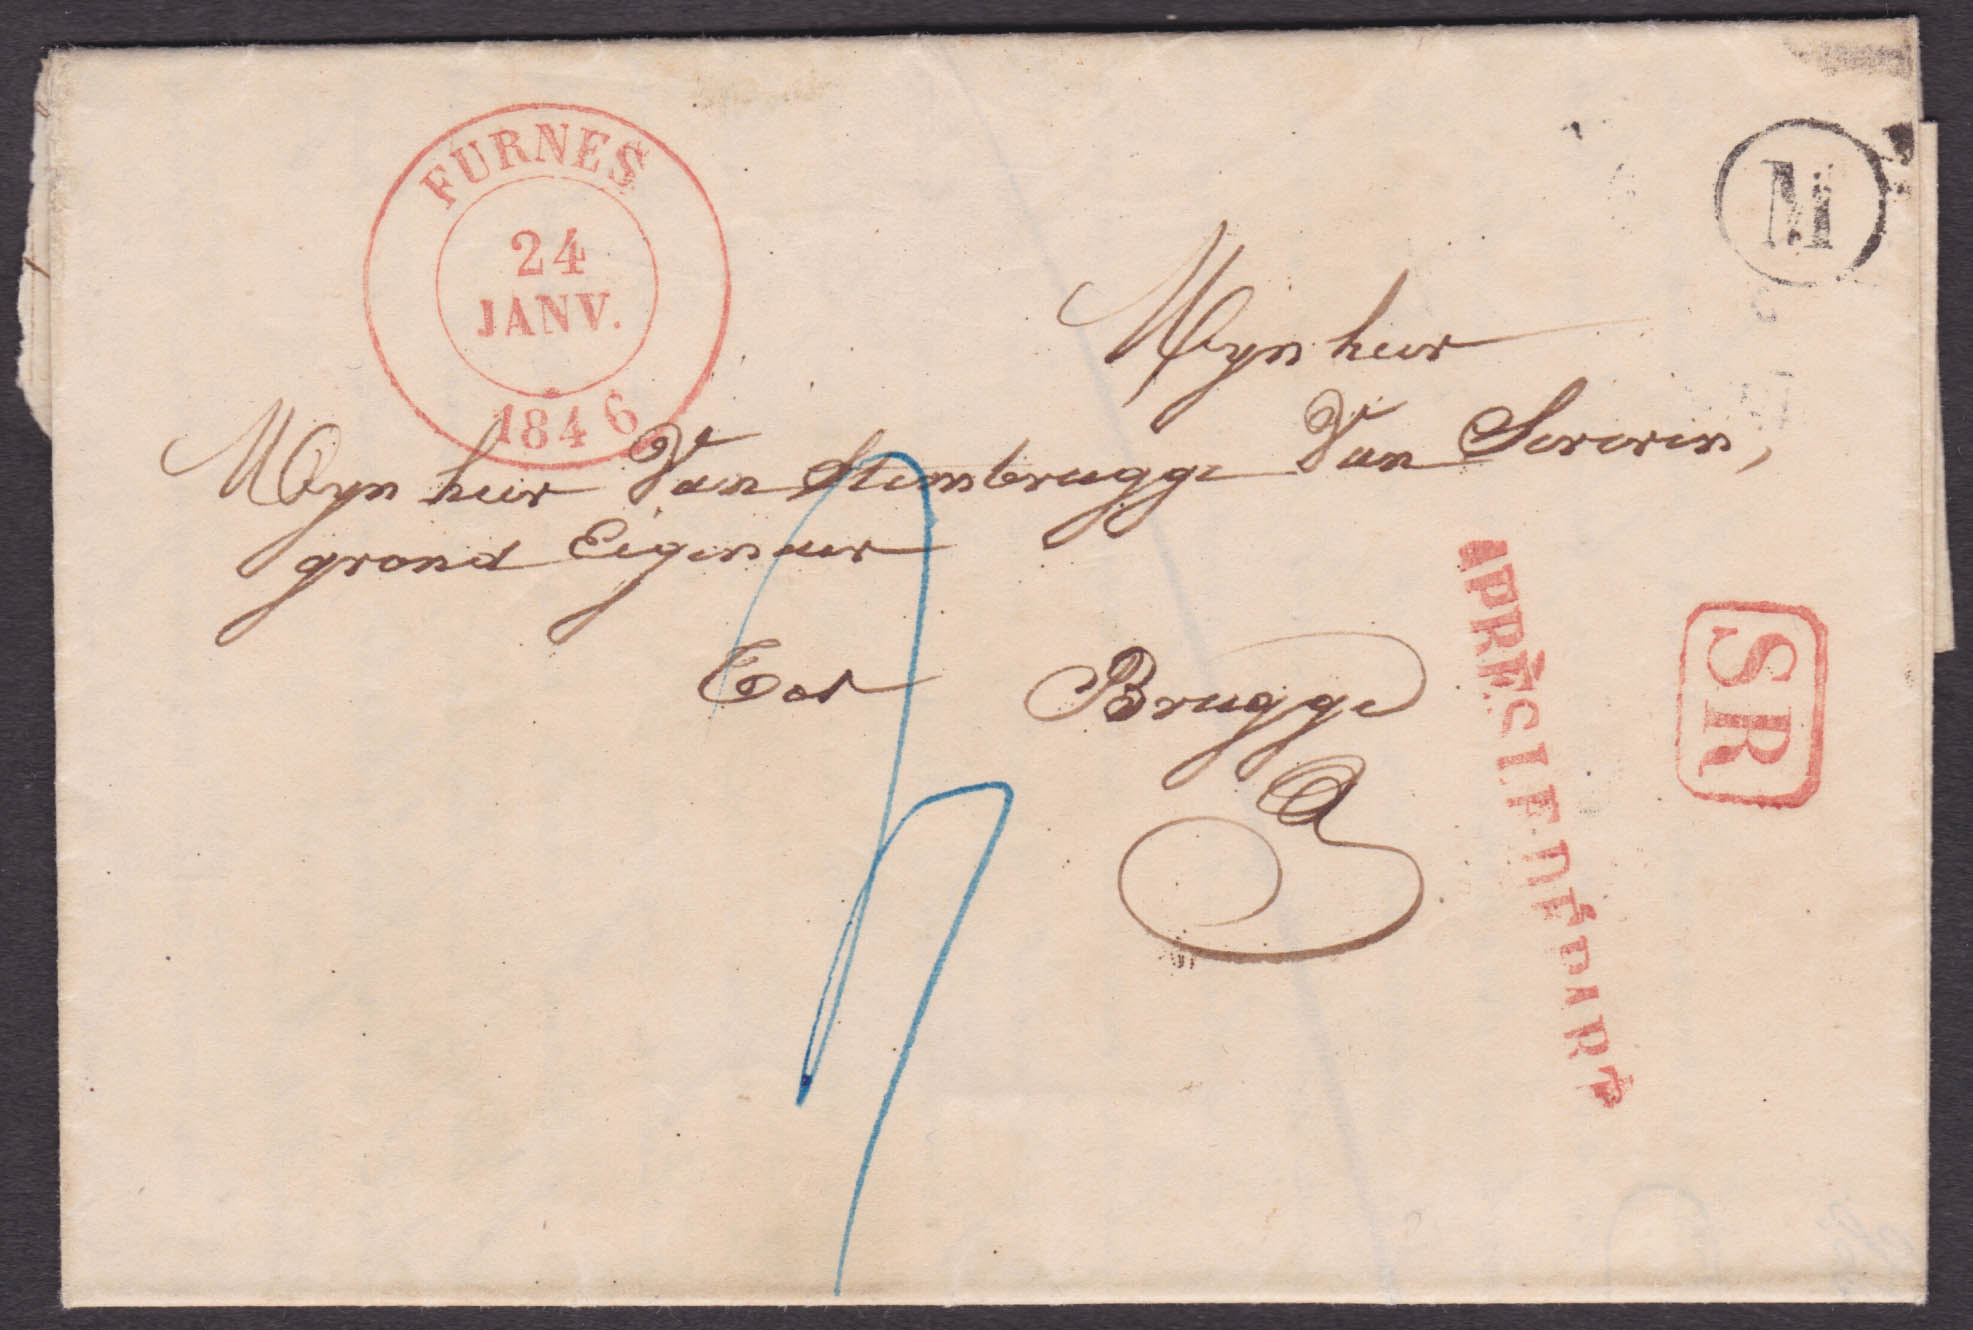 FURNES
24
JANV.
1846
M
Mynheer
Mynheer Van Steenbrugge Van Severen,
grond Eigenaer
Tot Brugge
APRÈS LE DÉPART
SR